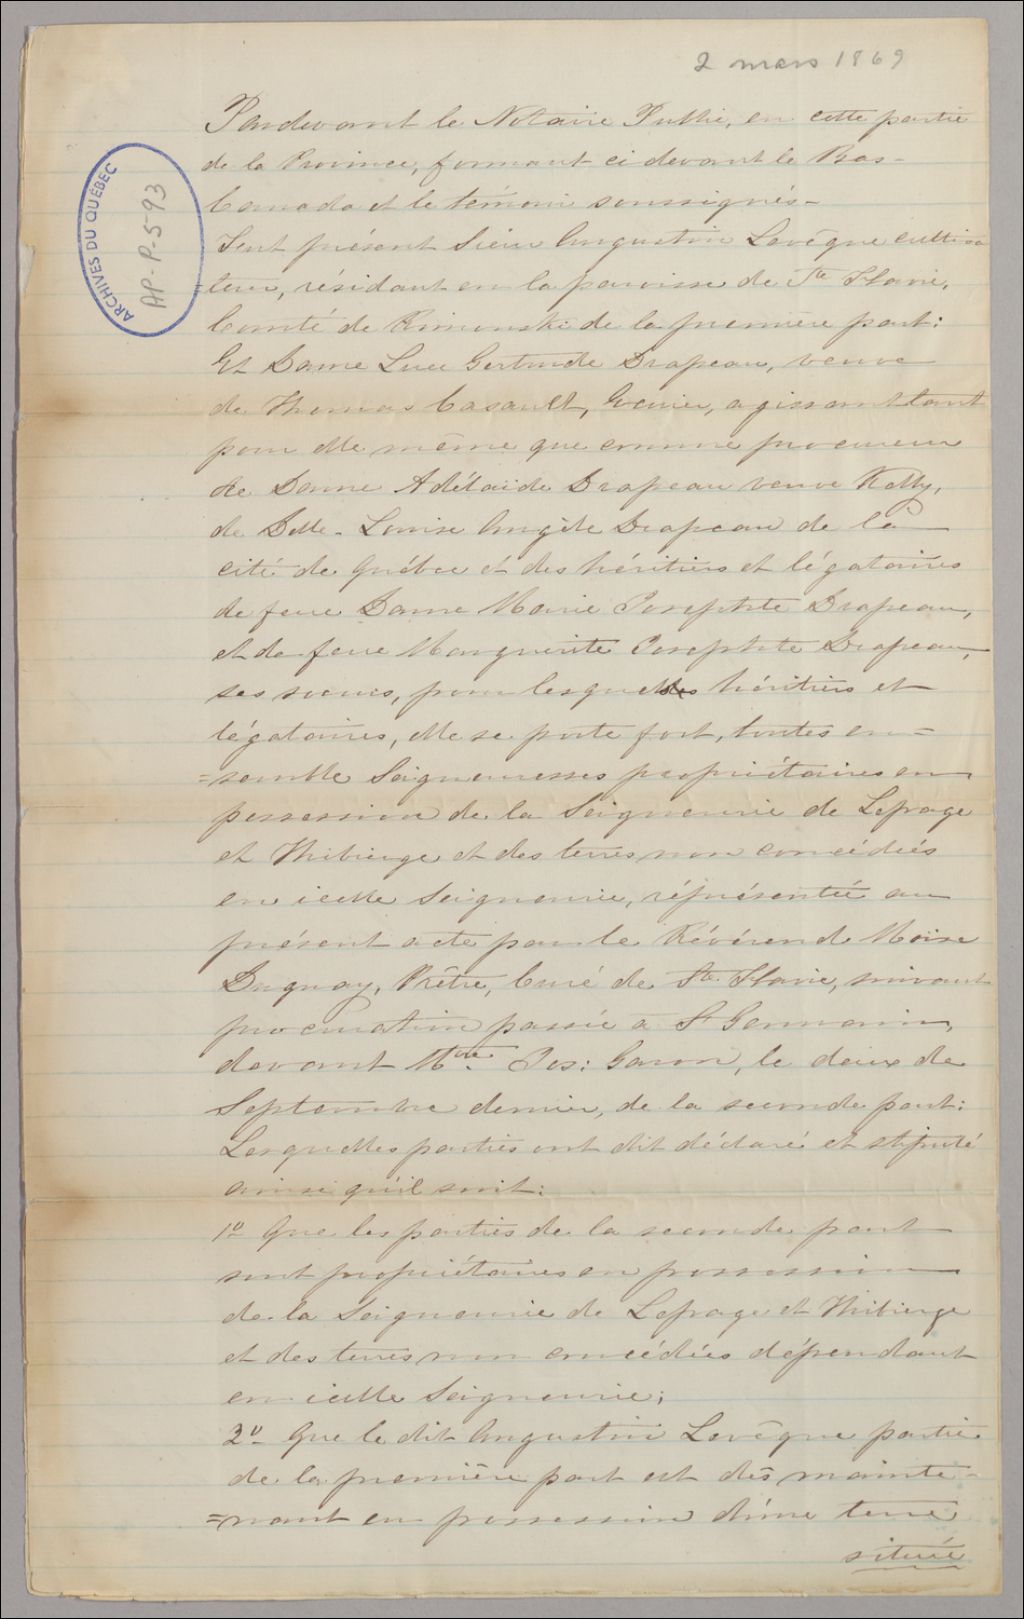 2 mars 1869
Pardevant le Notaire Public, en cette partie
de la Province, formant ci devant le Bas-
Canada et le témoin soussignés-
Fut présent Sieur Augustin Lavêque cultiva
=teur, résidant en la paroisse de Ste Flavie,
Comté de Rimouski de la première part:
Et Dame Luce Gertrude Drapeau, veuve
de Thomas Casault, Ecuier, agissant tant
pour elle même que comme procureur
de Dame Adélaïde Drapeau veuve Kelly,
de Delle. Louise Angèle Drapeau de la
cité de Québec et des héritiers et légataires
de feue Dame Marie Josephte Drapeau,
et de feue Marguerite Josephte Drapeau,
ses soeurs, pour lesquelles héritiers et
légataires, elle se porte fort, toutes en=
=semble Seigneuresses propriétaires en
possession de la Seigneurie de Lepage
et Thibierge et des terres non concédées
en icelle Seigneurie, réprésentée au
présent acte par le Révérend Moïse
Duguay, Prêtre, Curé de Ste Flavie, suivant
procuration passée à St Germain,
devant Mtre. Jos: Garon, le deux de
Septembre dernier, de la seconde part:
Lesquelles parties ont dit déclaré et stipulé
ainsi qu'il suit:
1o Que les parties de la seconde part
sont propriétaires en possession
de la Seigneurie de Lepage et Thibierge
et des terres non concédées dépendant
en icelle Seigneurie;
2o- Que le dit Augustin Lavêque partie
de la première part est dès mainte-
=nant en possession d'une terre
située
ARCHIVES DU QUÉBEC
AP-P-5-93